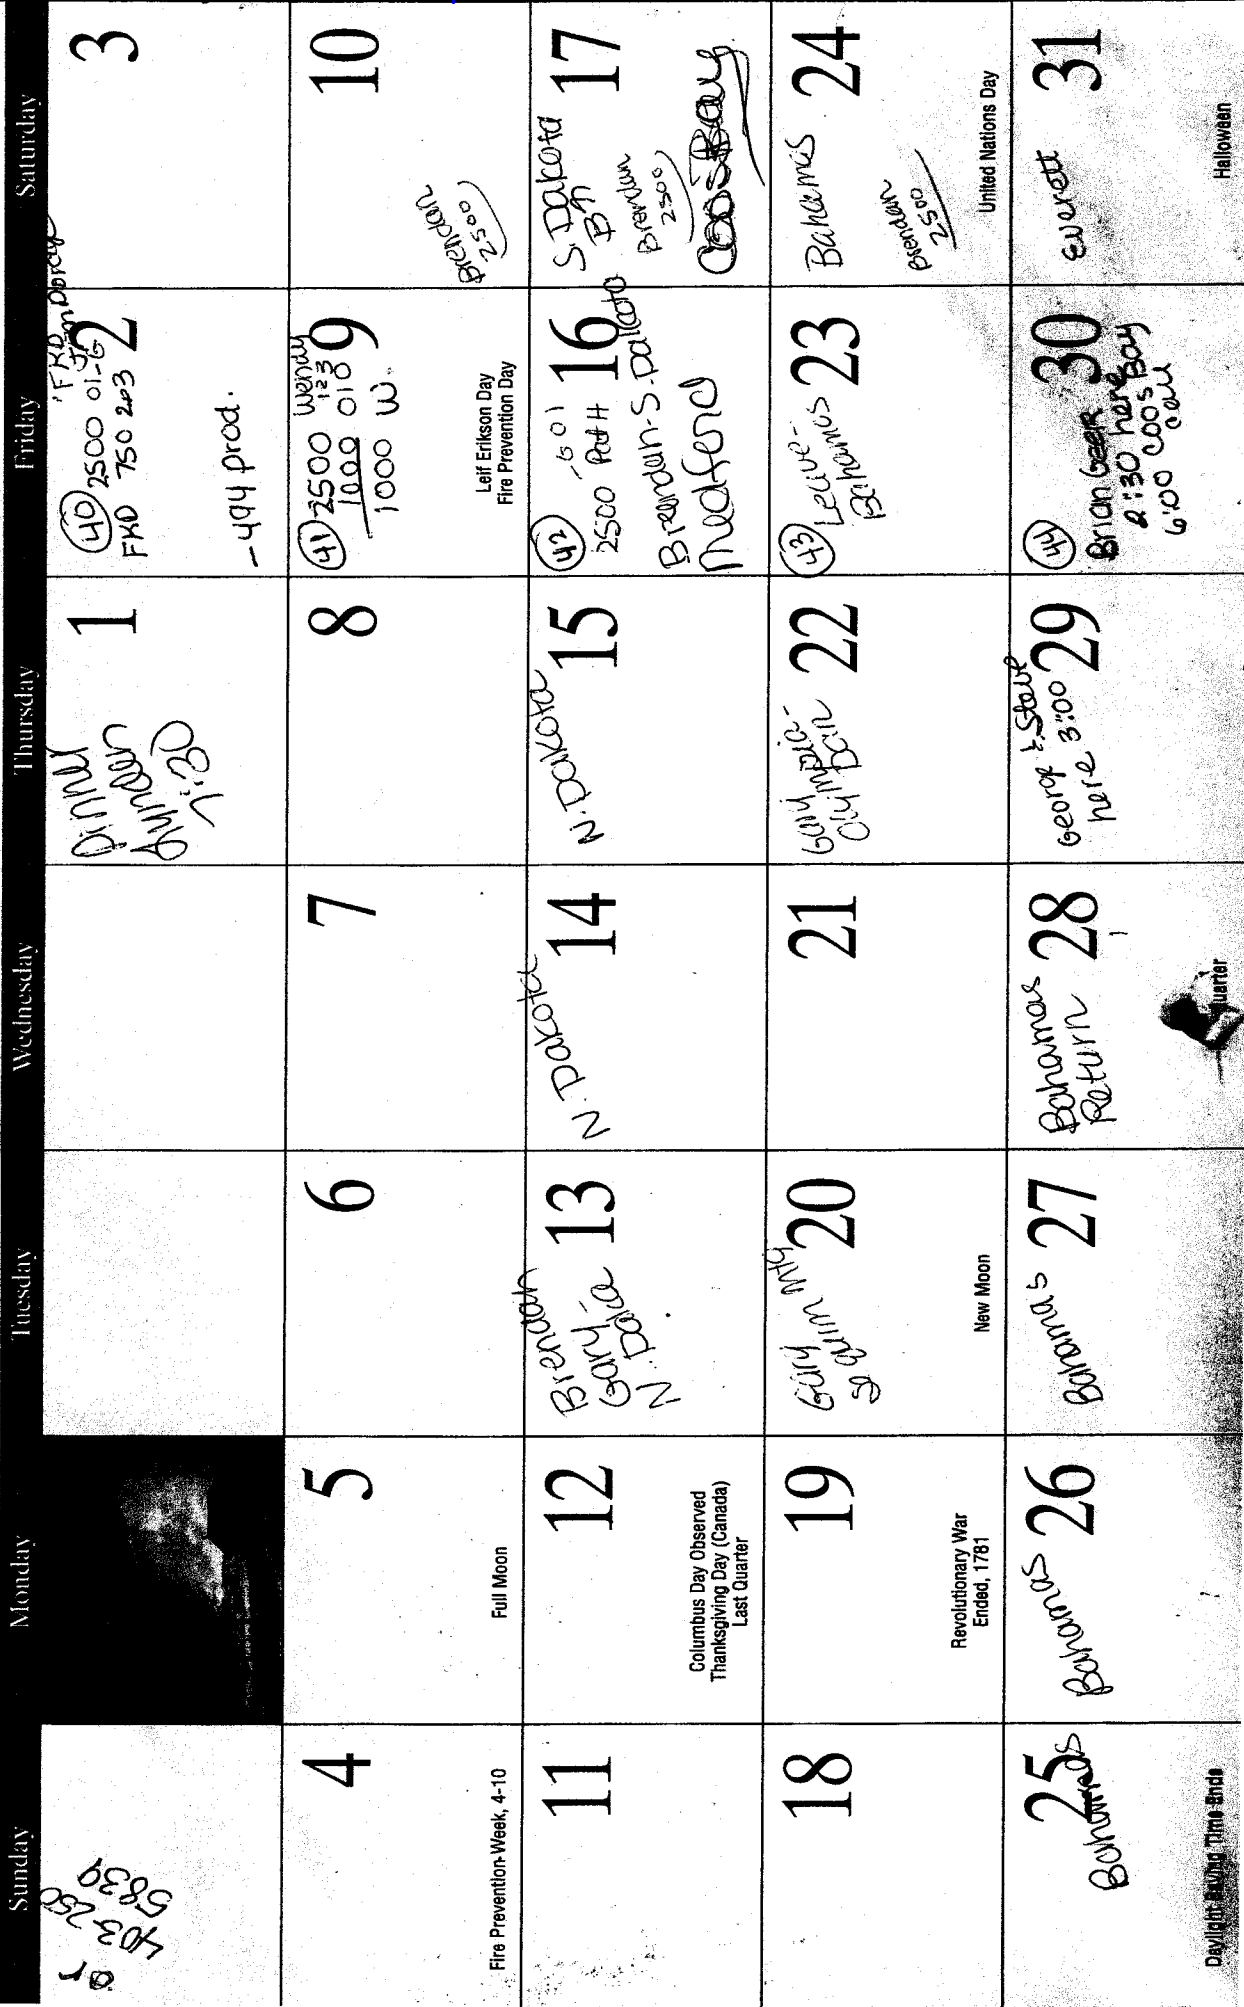 Sunday Monday Tuesday Wednesday Thursday Friday Saturday
or
403-250
5839
1
Dinner
7:30
2
40 2500 01-G
FKD 750 203
-494 prod.
3
4
Fire Prevention Week, 4-10
5
Full Moon
6
7
8
9
41 2500 Wendy
1000 010
1000 W.
123
Leif Erikson Day
Fire Prevention Day
10
Brendan
2500
11
12
Columbus Day Observed
Thanksgiving Day (Canada)
Last Quarter
13
Brendan
Gary-
N.
14
N. Dakota
15
N. Dakota
16
42
2500
Brendan-S.
Medford
17
S. Dakota
Bn
Brendan
2500
Coos Bay
18
19
Revolutionary War
Ended, 1781
20
Gary mtg
New Moon
21
22
Gary
23
43 Leave-
Bahamas
24
Bahamas
Brendan
2500
United Nations Day
25
Bahamas
Daylight Saving Time Ends
26
Bahamas
27
Bahamas
28
Bahamas
Return
uarter
29
George & Steve
here 3:00
30
44
Brian Geer
2:30 here
6:00 Coos Bay
call
31
Everett
Halloween